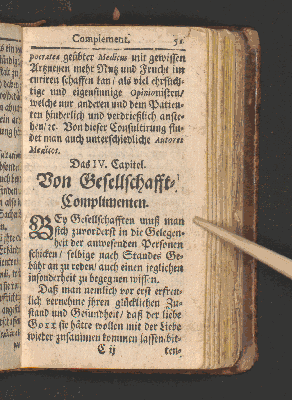 Complement. 51
pocrates geübter Medicus mit gewissen
Artzneyen mehr Nutz und Frucht im
curiren schaffen kan/ als viel ehrsüch-
tige und eigensinnige Opinionisten/
welche nur andern und dem Patien-
ten hinderlich und verdrießlich anste-
hen/ ꝛc. Von dieser Consultirung fin-
det man auch unterschiedliche Autores
Medicos.
Das IV. Capitel.
Von Gesellschafft-
Complimenten.
BEy Gesellschafften muß man
sich zuvorderst in die Gelegen-
heit der anwesenden Personen
schicken/ selbige nach Standes Ge-
bühr an zu reden/ auch einen jeglichen
insonderheit zu begegnen wissen.
Daß man nemlich vor erst erfreu-
lich vernehme ihren glücklichen Zu-
stand und Gesundheit/ daß der liebe
GOTT sie hätte wollen mit der Liebe
wieder zusammen kommen lassen/ bit-
C ij ten-